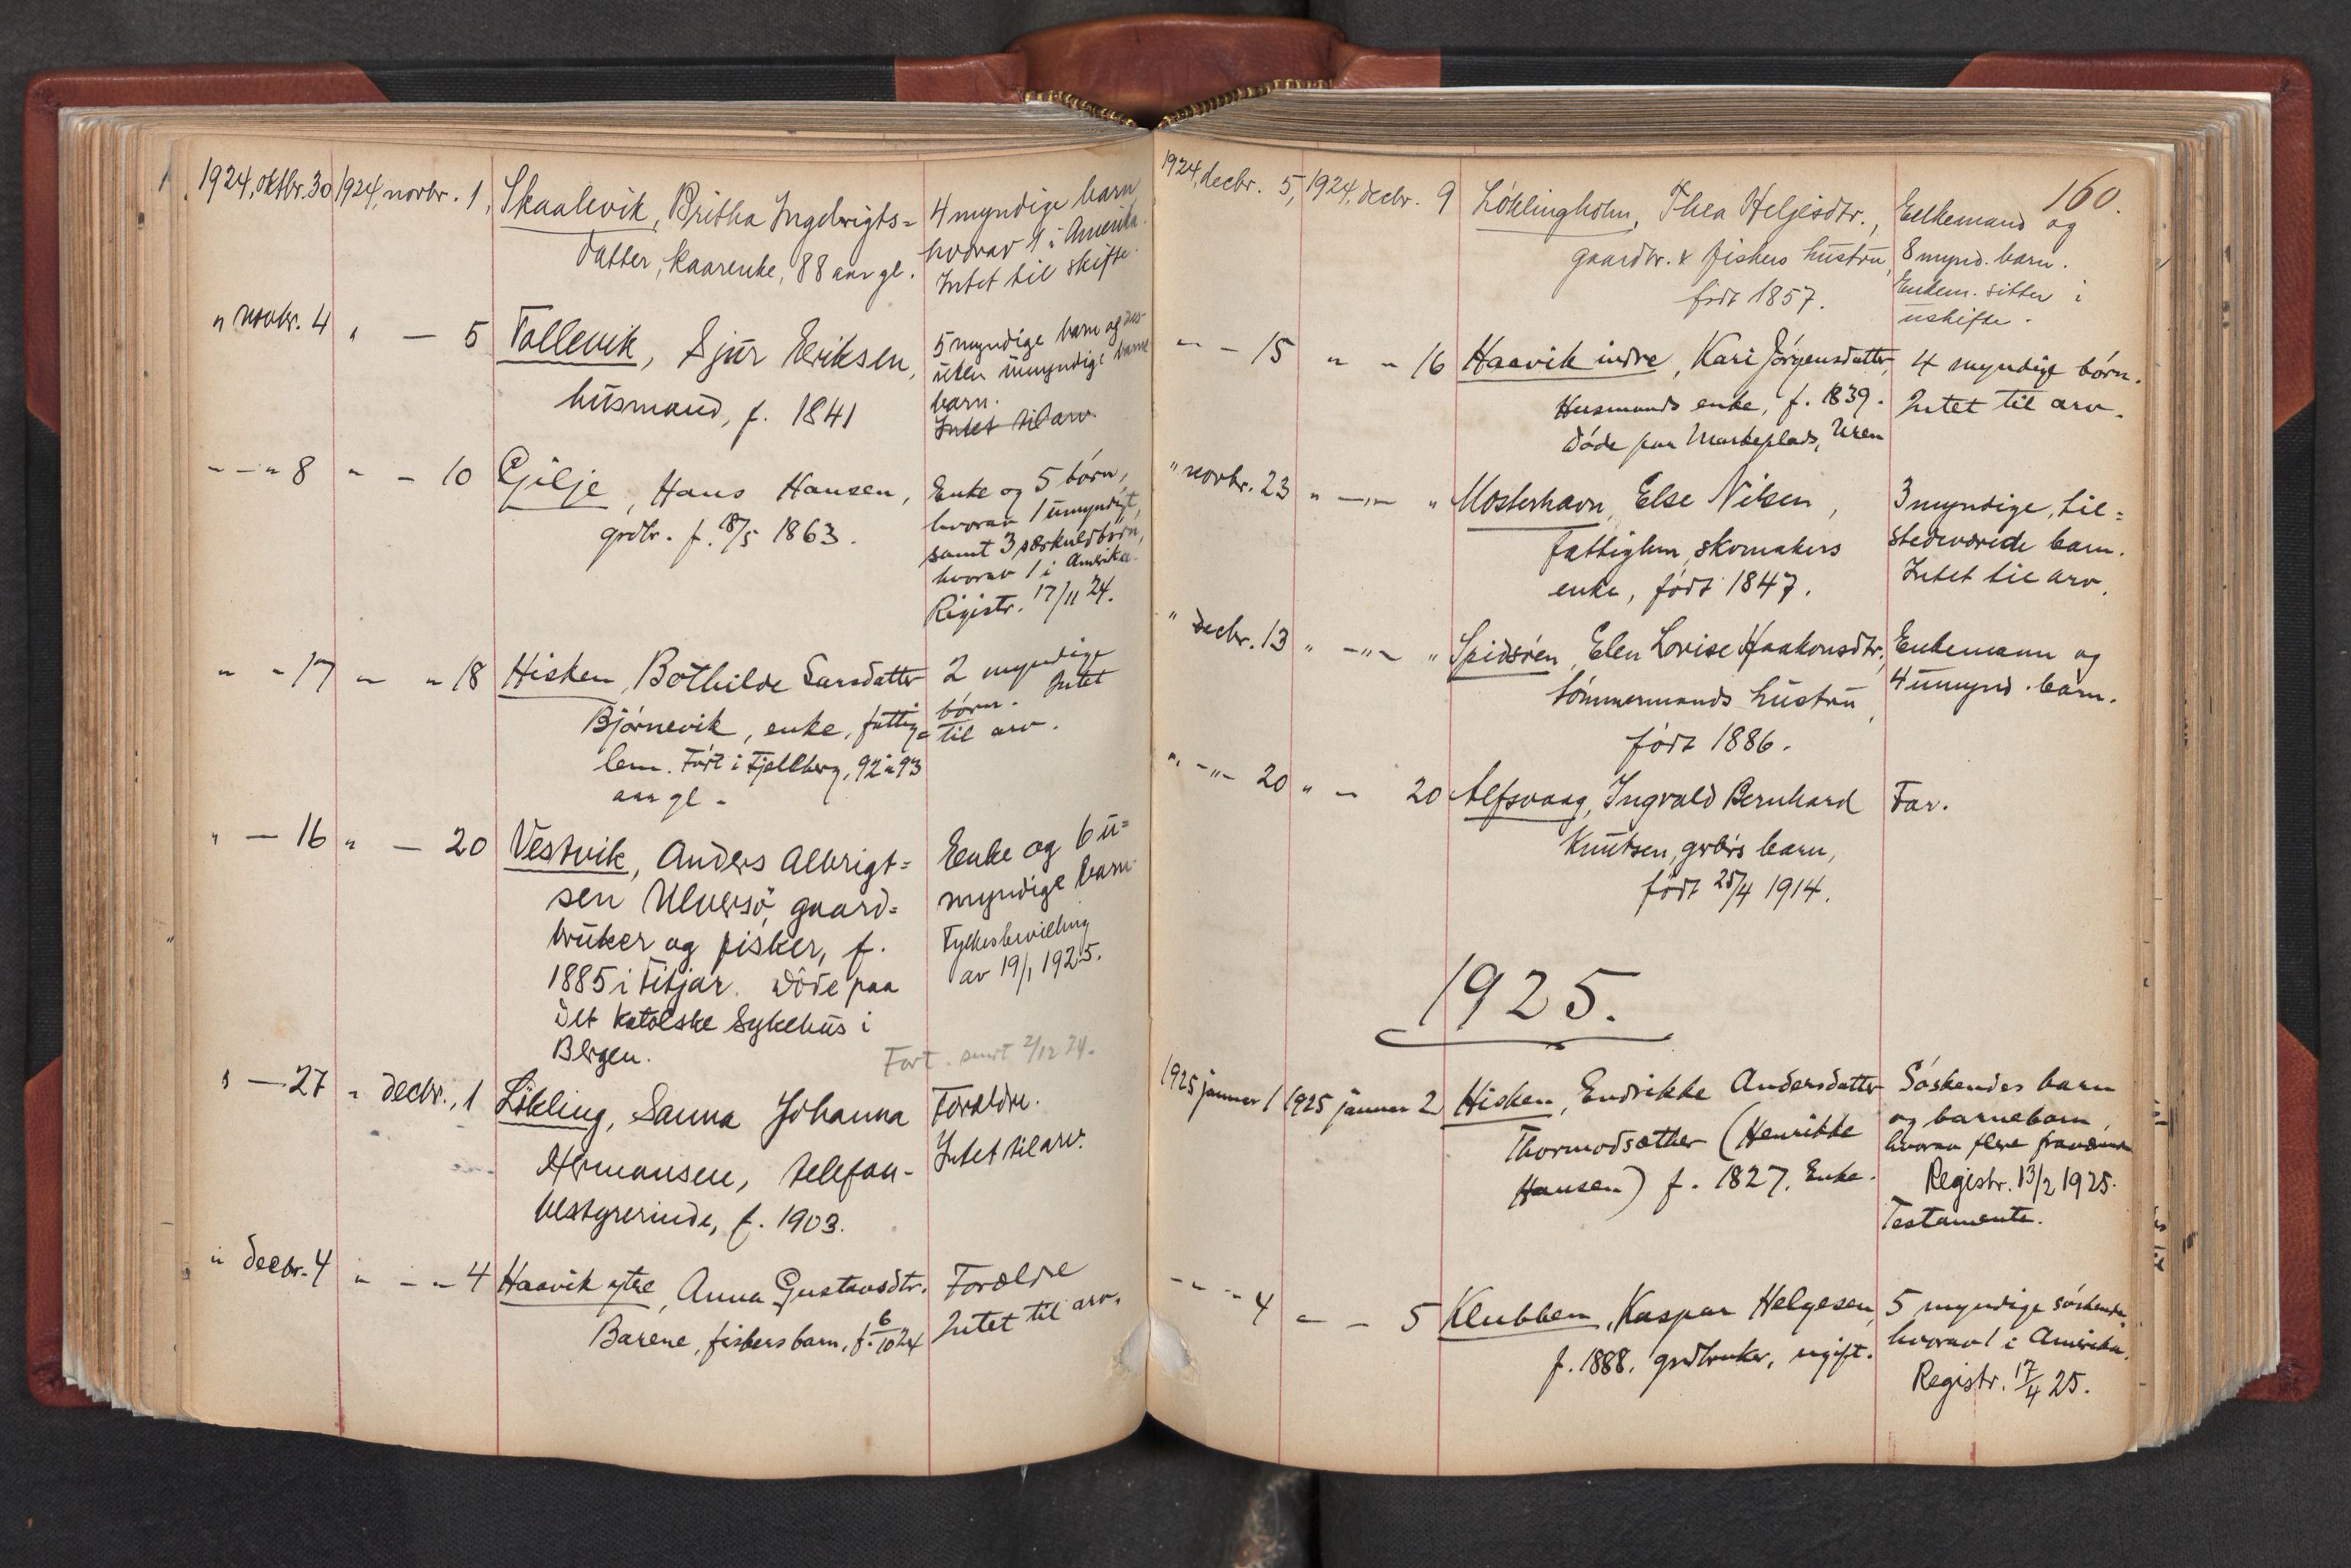 1924, oktbr. 30 1924, novbr. 1, Skaalevik, Britha Ingebrigts= 4 myndige barn
datter, kaarenke, 88 aar gl. hvorav 1 i Amerika.
Intet til skifte.
" novbr. 4 " — 5 Tollevik, Sjur Eriksen, 5 myndige barn og
uten umyndige barne
husmand, f. 1841 barn.
Intet til arv.
" — " 8 " — 10 Gjilje, Hans Hansen, Enke og 5 børn,
grdbr. f. 8/5 1863. hvorav 1 umyndigt,
samt 3 særkuldbørn,
hvorav 1 i Amerika.
Registr. 17/11 24.
" - 17 " " 18 Hisken, Bothilde Larsdatter 2 myndige
Bjørnevik, enke, fattig= børn. Intet
lem. Født i Fjellberg, 92 à 93 til arv.
aar gl.
" — 16 " — 20 Vestvik, Anders Albrigt= Enke og 6 u=
sen Ulversö, gaard= myndige barn
bruker og fisker, f. Fylkesbevilling
1885 i Fitjar. Døde paa av 19/1 1925.
det katolske Sykehus i
Bergen.
Fort. 2/12 24.
" — 27 " decbr. 1 Løkling, Sanna Johanna Forældre.
Hermansen, telefon- Intet til arv.
bestyrerinde, f. 1903.
" decbr. 4 " - " 4 Haavik ytre, Anna Gustavsdtr. Forældre
Barene, fiskers barn, f. 6/10 24 Intet til arv.
160.
1924, decbr. 5, 1924, decbr. 9 Løklingholm, Thea Helgesdtr., Enkemand og
gaardbr. & fiskers hustru, 8 mynd. barn.
født 1857. Enkem. sitter i
uskifte.
" - 15 " " 16 Haavik indre, Kari Jørgensdatter, 4 myndige børn.
Husmands enke, f. 1839. Intet til arv.
Døde paa Markeplads, Uren
" novbr. 23 " — " — " Mosterhavn, Else Nilsen, 3 myndige, til=
fattiglem, skomakers stedeværende barn.
enke, født 1847. Intet til arv.
" decbr. 13 " — " — " Spidsøen, Elen Lovise Haakonsdtr. Enkemann og
tømmermands hustru, 4 umynd. barn.
født 1886.
" — " — 20 " — 20 Alfsvaag, Ingvald Bernhard Far.
Knutsen, grdbr's barn,
født 25/4 1914.
1925.
1925 januar 1 1925 januar 2 Hisken, Endrikke Andersdatter Søskendes barn
Thormodsæther (Henrikke og barnebarn,
Hansen) f. 1827, Enke. hvorav flere
Registr. 13/2 1925.
Testamente.
" - " 4 " — 5 Klubben, Kaspar Helgesen, 5 myndige søskende,
f. 1888. grdbruker, ugift. hvorav 1 i Amerika.
Registr. 17/4 25.